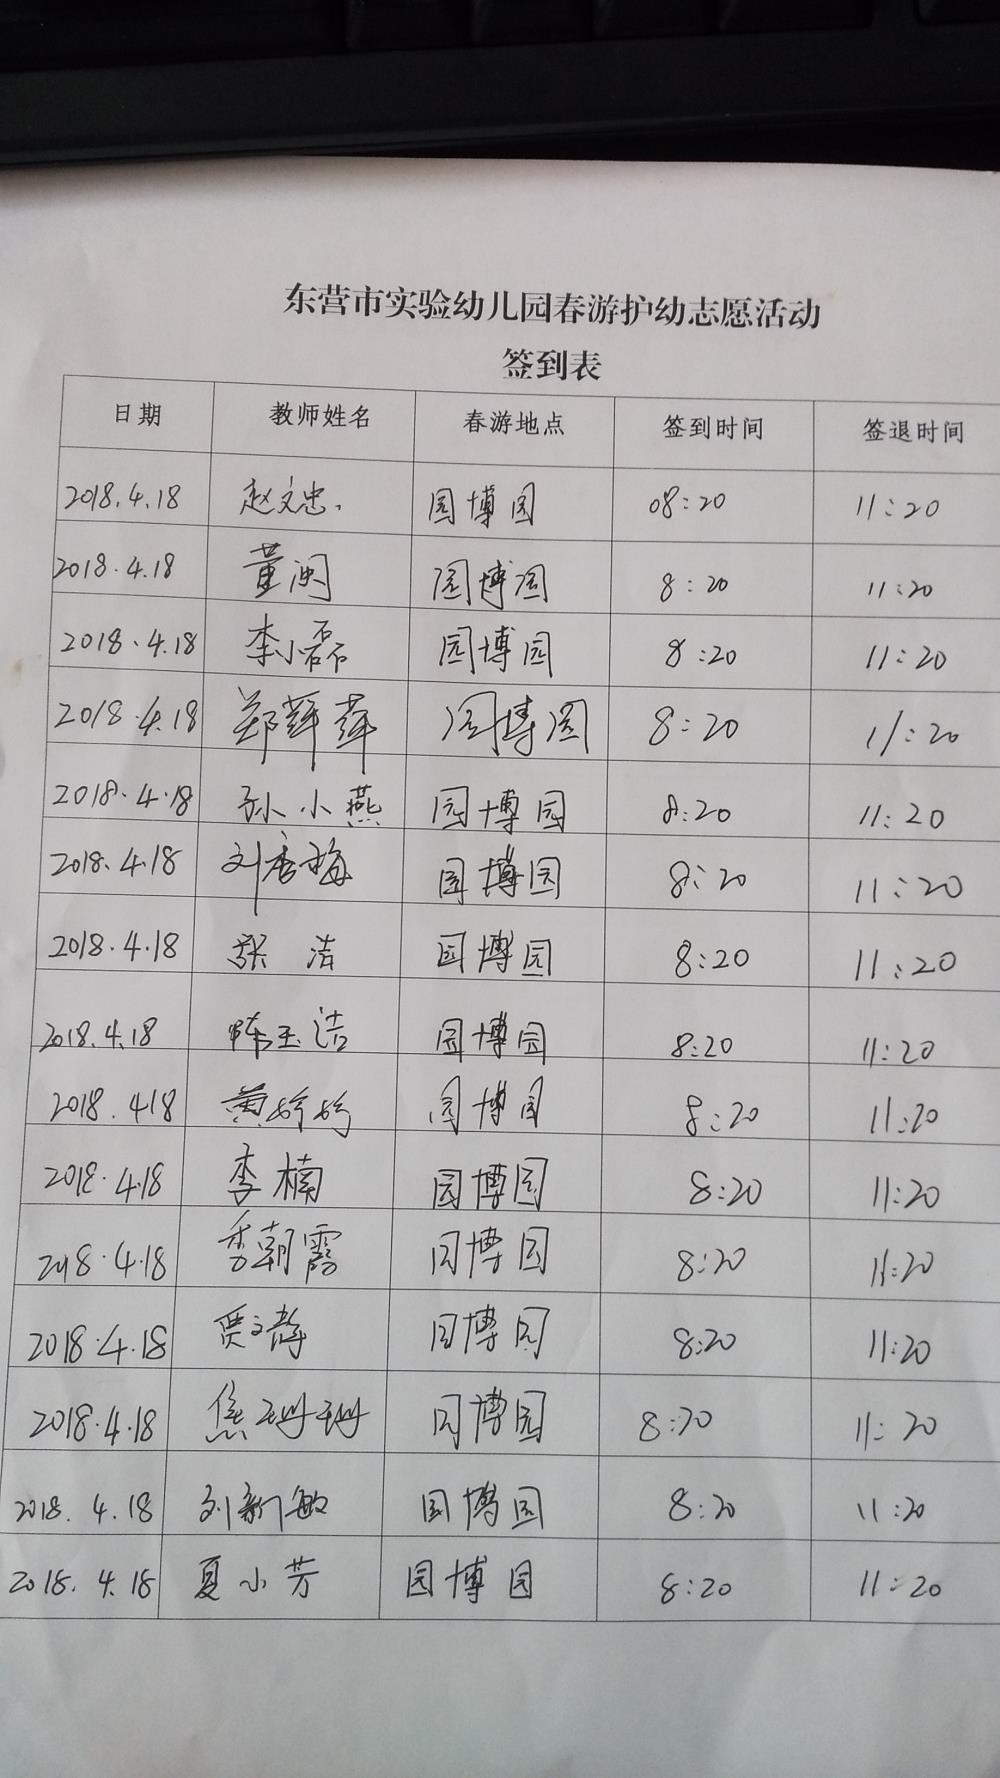 东营市实验幼儿园春游护幼志愿活动
签到表
日期 教师姓名 春游地点 签到时间 签退时间
2018.4.18 赵文忠. 园博园 08:20 11:20
2018.4.18 董闽 园博园 8:20 11:20
2018.4.18 李小磊 园博园 8:20 11:20
2018.4.18 郑辉萍 园博园 8:20 11:20
2018.4.18 孙小燕 园博园 8:20 11:20
2018.4.18 刘秀梅 园博园 8:20 11:20
2018.4.18 张洁 园博园 8:20 11:20
2018.4.18 陈玉洁 园博园 8:20 11:20
2018.4.18 黄婷婷 园博园 8:20 11:20
2018.4.18 李楠 园博园 8:20 11:20
2018.4.18 季朝霞 园博园 8:20 11:20
2018.4.18 贾文静 园博园 8:20 11:20
2018.4.18 焦珊珊 园博园 8:20 11:20
2018.4.18 刘新敏 园博园 8:20 11:20
2018.4.18 夏小芳 园博园 8:20 11:20